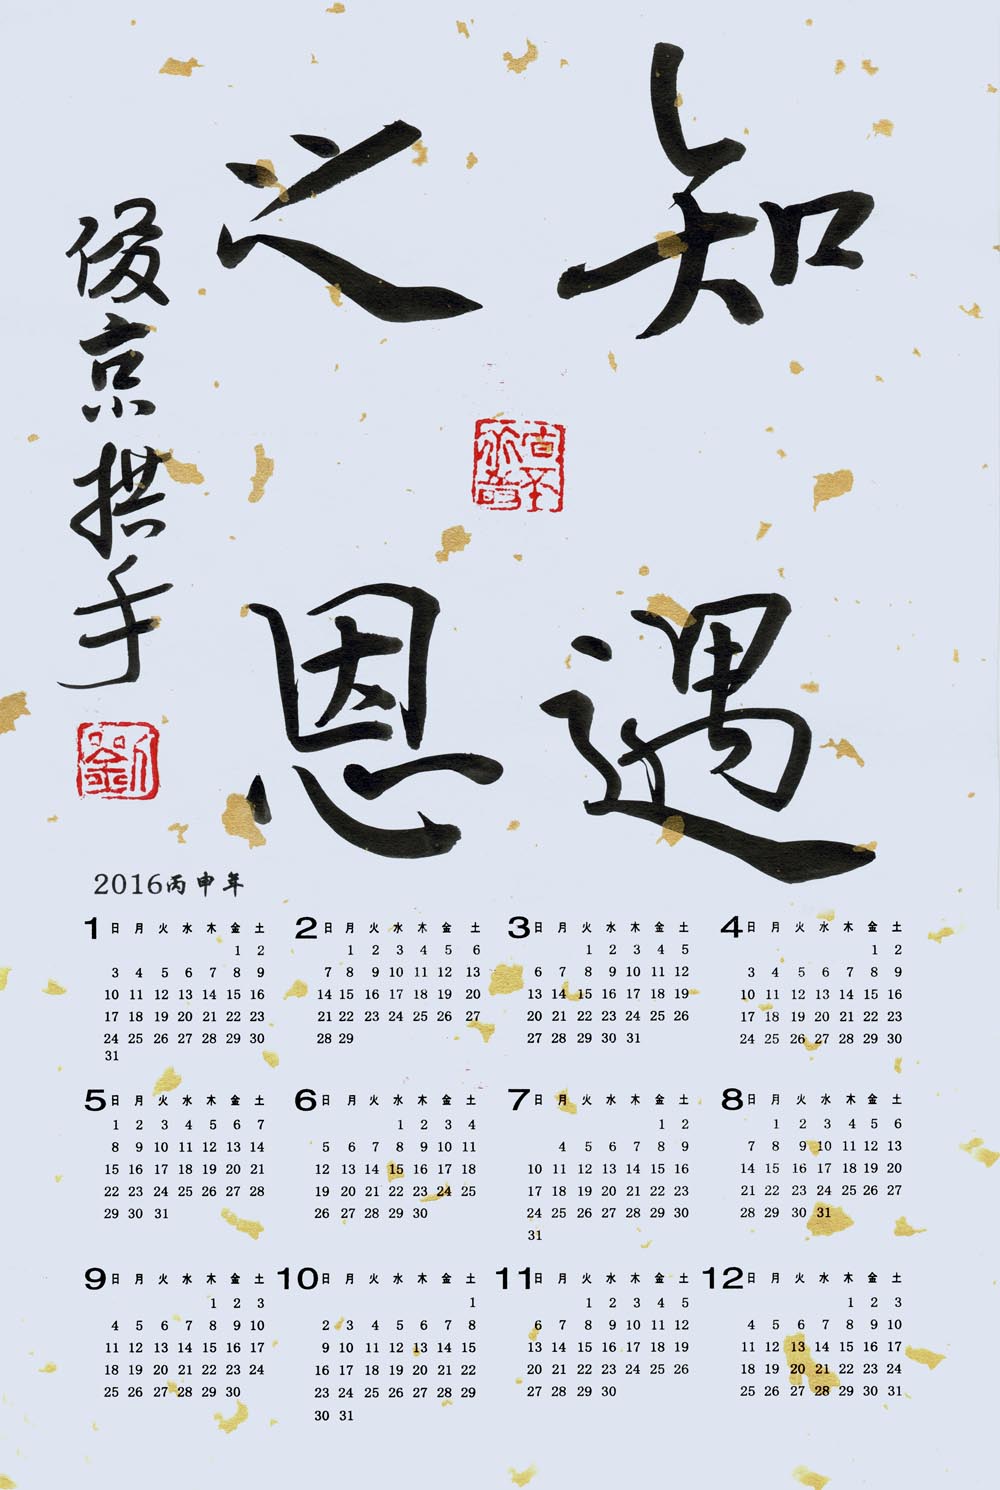 知遇
之恩
俊京拱手
劉
2016丙申年
1 日 月 火 水 木 金 土
1 2
3 4 5 6 7 8 9
10 11 12 13 14 15 16
17 18 19 20 21 22 23
24 25 26 27 28 29 30
31
2 日 月 火 水 木 金 土
1 2 3 4 5 6
7 8 9 10 11 12 13
14 15 16 17 18 19 20
21 22 23 24 25 26 27
28 29
3 日 月 火 水 木 金 土
1 2 3 4 5
6 7 8 9 10 11 12
13 14 15 16 17 18 19
20 21 22 23 24 25 26
27 28 29 30 31
4 日 月 火 水 木 金 土
1 2
3 4 5 6 7 8 9
10 11 12 13 14 15 16
17 18 19 20 21 22 23
24 25 26 27 28 29 30
5 日 月 火 水 木 金 土
1 2 3 4 5 6 7
8 9 10 11 12 13 14
15 16 17 18 19 20 21
22 23 24 25 26 27 28
29 30 31
6 日 月 火 水 木 金 土
1 2 3 4
5 6 7 8 9 10 11
12 13 14 15 16 17 18
19 20 21 22 23 24 25
26 27 28 29 30
7 日 月 火 水 木 金 土
1 2
4 5 6 7 8 9
10 11 12 13 14 15 16
17 18 19 20 21 22 23
24 25 26 27 28 29 30
31
8 日 月 火 水 木 金 土
1 2 3 4 5 6
7 8 9 10 11 12 13
14 15 16 17 18 19 20
21 22 23 24 25 26 27
28 29 30 31
9 日 月 火 水 木 金 土
1 2 3
4 5 6 7 8 9 10
11 12 13 14 15 16 17
18 19 20 21 22 23 24
25 26 27 28 29 30
10 日 月 火 水 木 金 土
1
2 3 4 5 6 7 8
9 10 11 12 13 14 15
16 17 18 19 20 21 22
23 24 25 26 27 28 29
30 31
11 日 月 火 水 木 金 土
1 2 3 4 5
6 7 8 9 10 11 12
13 14 15 16 17 18 19
20 21 22 23 24 25 26
27 28 29 30
12 日 月 火 水 木 金 土
1 2 3
4 5 6 7 8 9 10
11 12 13 14 15 16 17
18 19 20 21 22 23 24
25 26 27 28 29 30 31